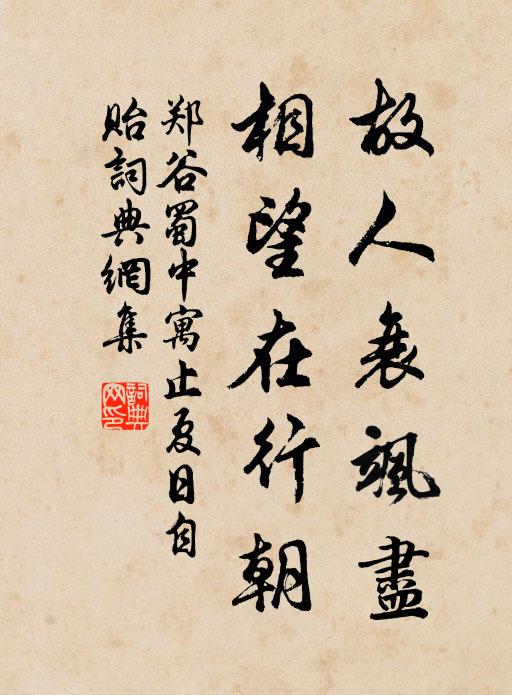 故人衰颯盡
相望在行朝
郑谷蜀中寓止夏日自
貽詞典網集
詞典
网印